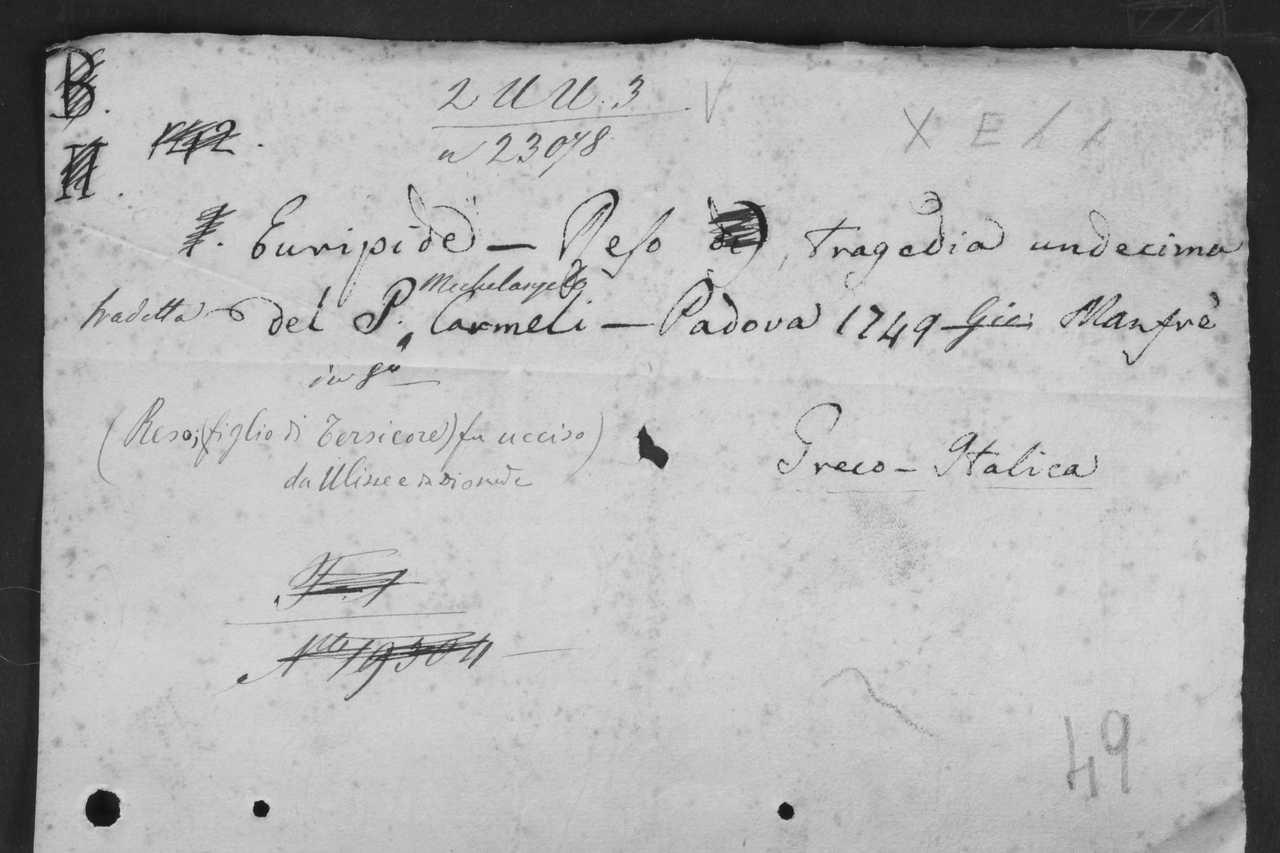 B.
2 U U. 3
n 23078
H.
Euripide — Reso, tragedia undecima
tradotta del P. Michelangelo Carmeli — Padova 1749 Gio: Manfrè
in 8º
(Reso; (figlio di Tersicore) fu ucciso)
da Ulisse e da Diomede
Greco - Italica
Nº 19304
49